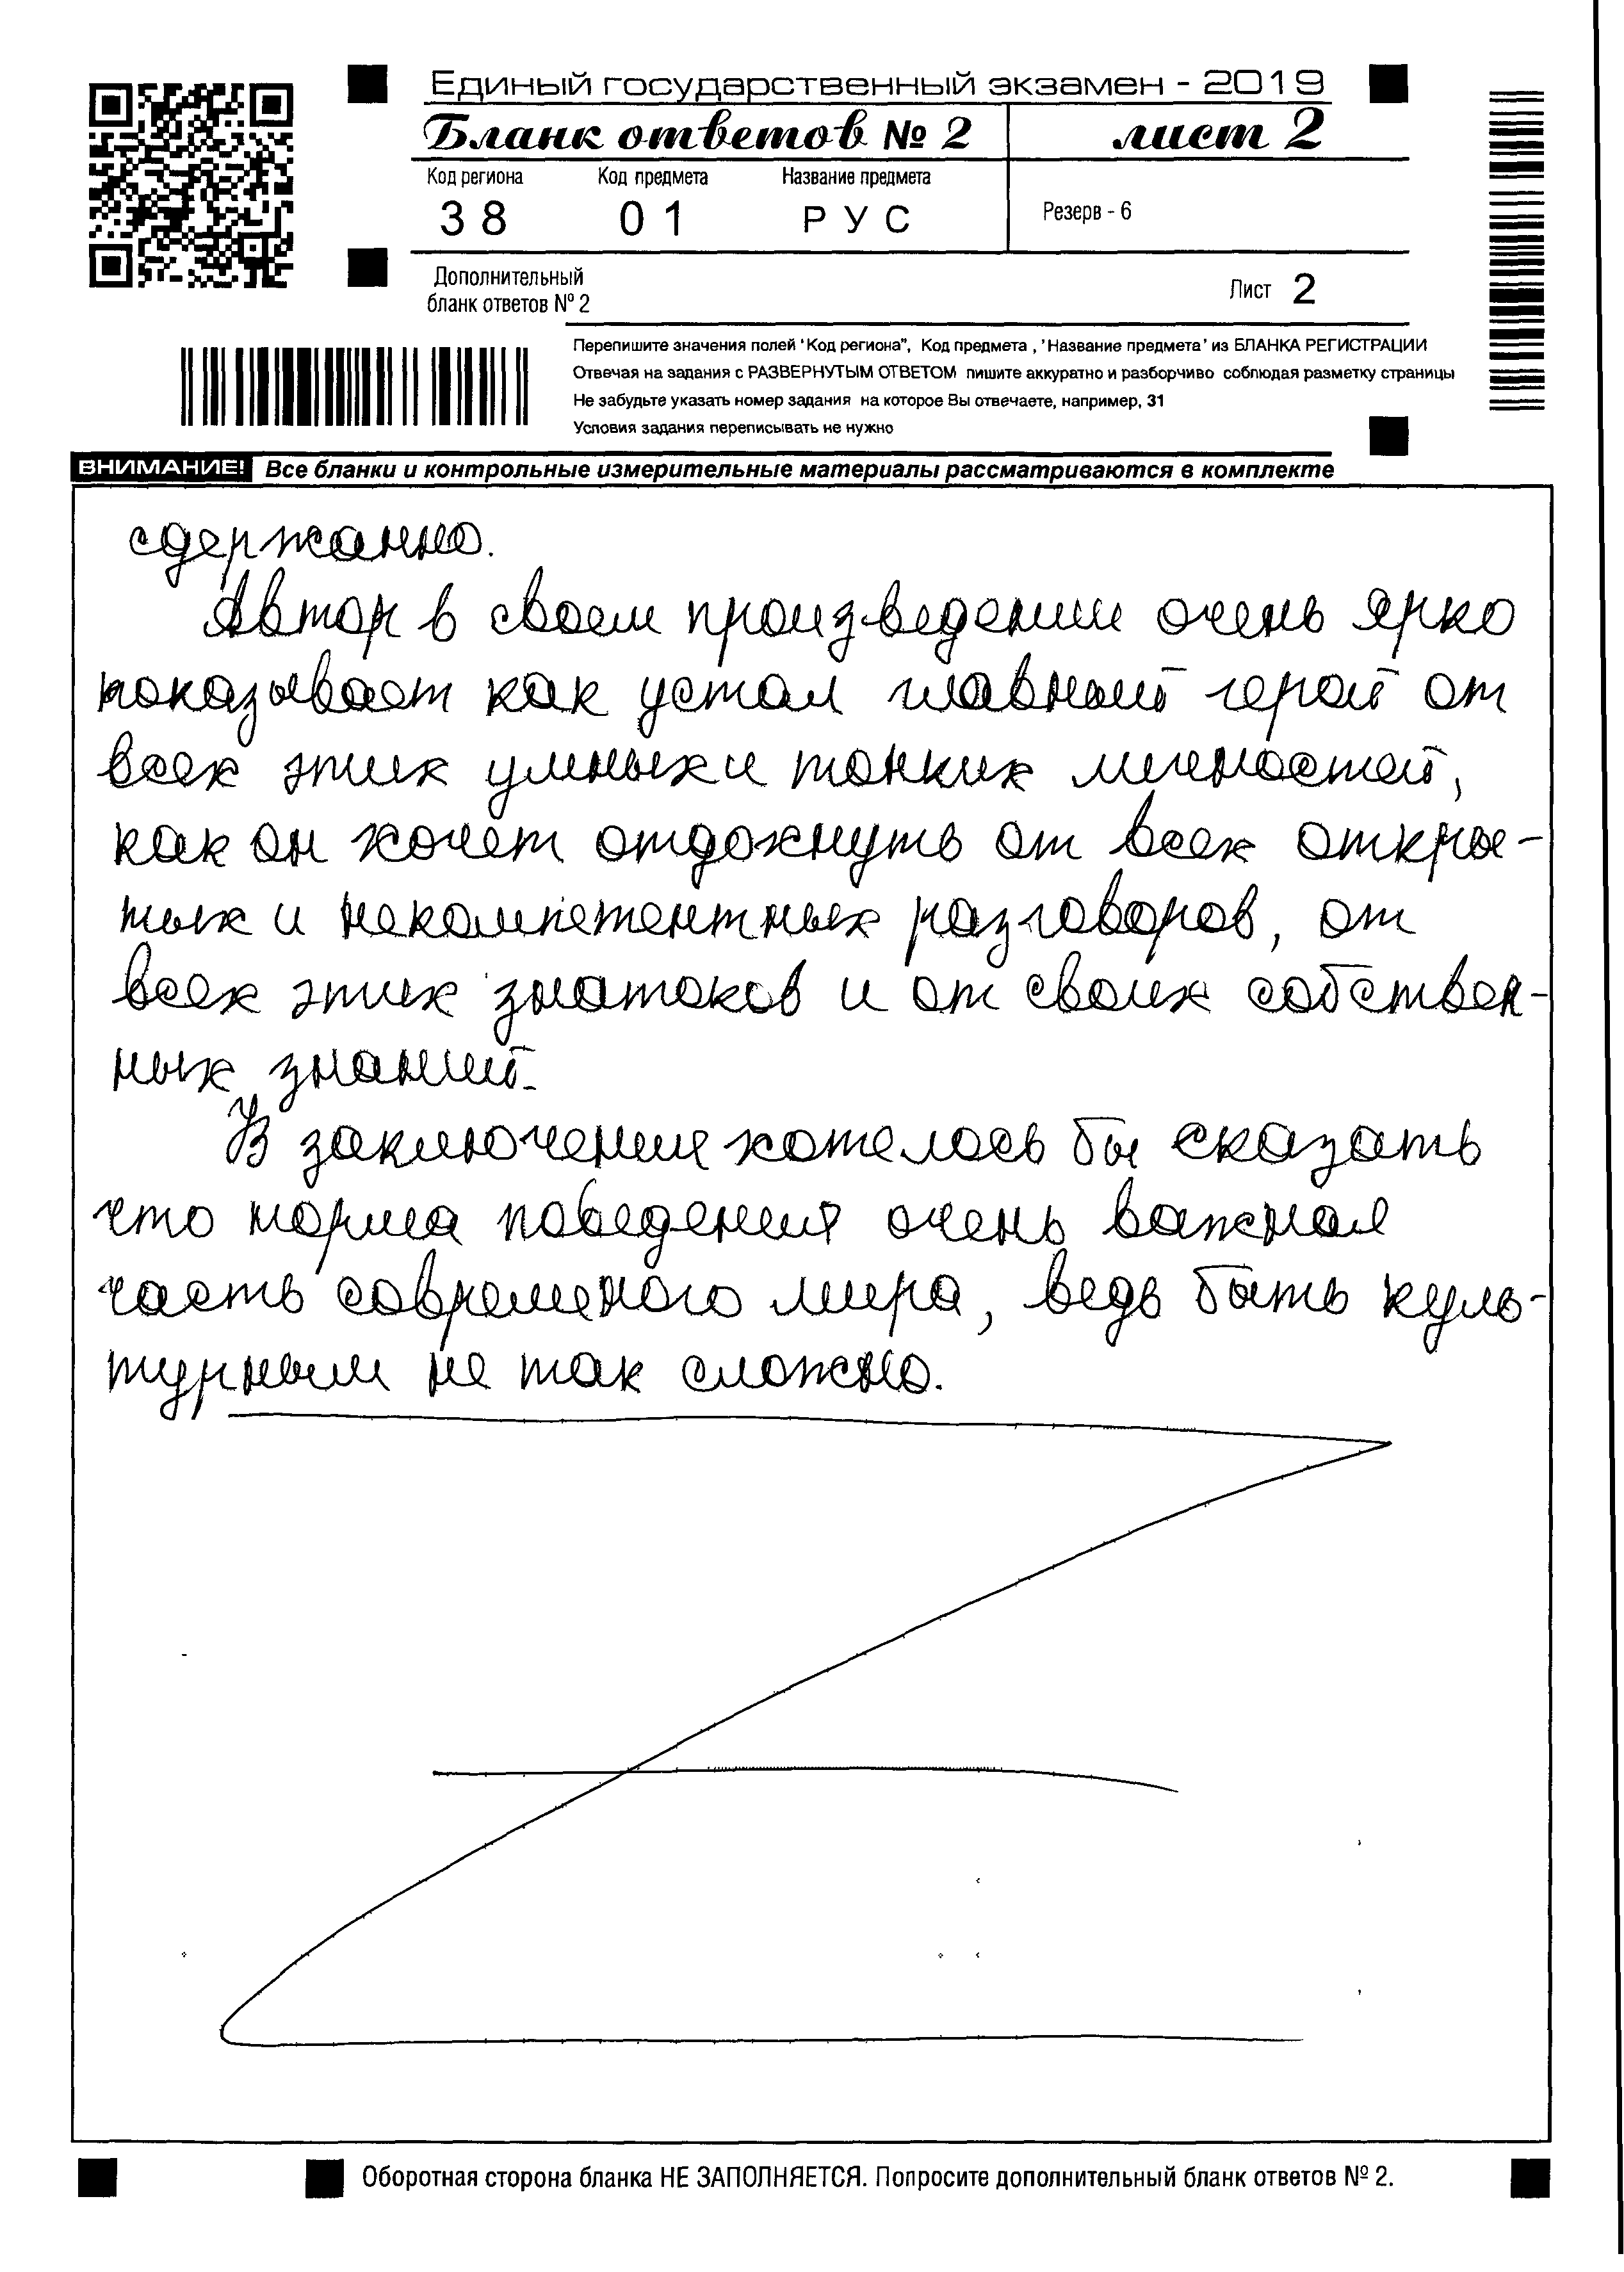 Единый государственный экзамен - 2019
Бланк ответов № 2 лист 2
Код региона Код предмета Название предмета
38 01 РУС Резерв - 6
Дополнительный
бланк ответов № 2
Лист 2
Перепишите значения полей "Код региона", Код предмета , 'Название предмета' из БЛАНКА РЕГИСТРАЦИИ
Отвечая на задания с РАЗВЕРНУТЫМ ОТВЕТОМ пишите аккуратно и разборчиво соблюдая разметку страницы
Не забудьте указать номер задания на которое Вы отвечаете, например, 31
Условия задания переписывать не нужно
ВНИМАНИЕ! Все бланки и контрольные измерительные материалы рассматриваются в комплекте
сдержанно.
Автор в своем произведении очень ярко
показывает как устал главный герой от
всех этих умных и тонких личностей,
как он хочет отдохнуть от всех откры-
тых и некомпетентных разговоров, от
всех этих знатоков и от своих собствен-
ных знаний.
В заключении хотелось бы сказать
что норма поведения очень важная
часть современого мира, ведь быть куль-
турным не так сложно.
Оборотная сторона бланка НЕ ЗАПОЛНЯЕТСЯ. Попросите дополнительный бланк ответов № 2.